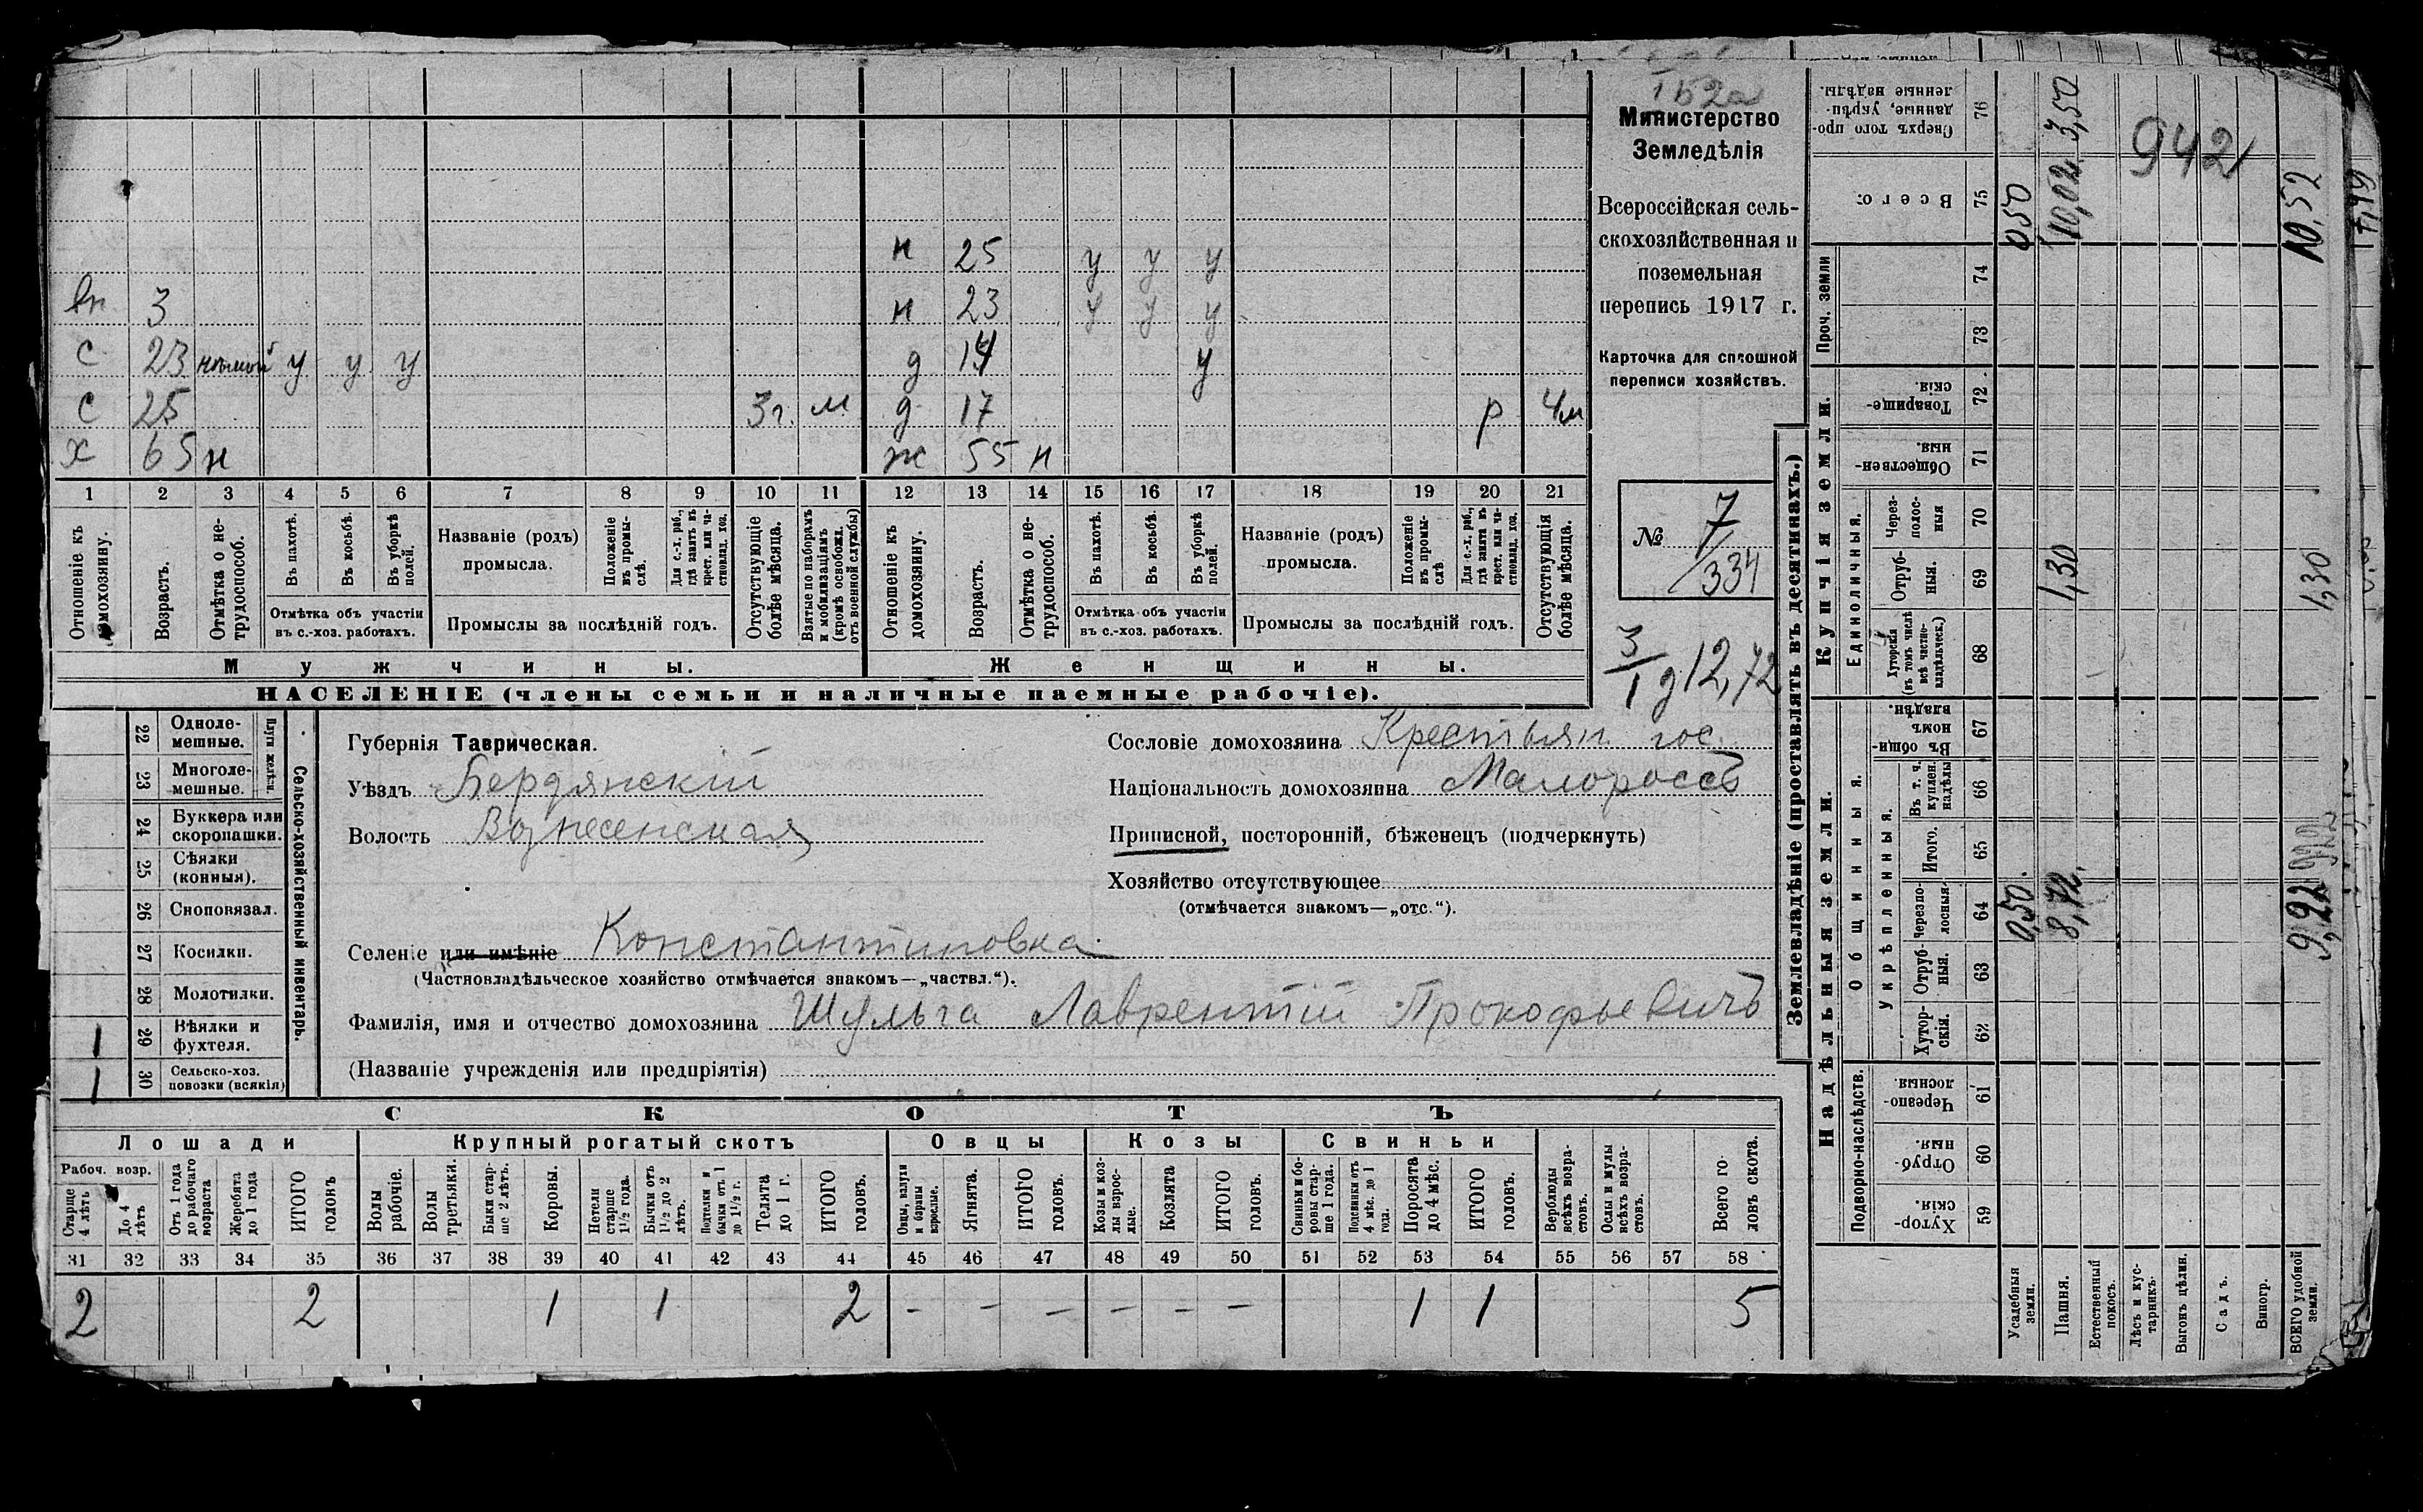 152а
Министерство
Земледѣлія
Всероссійская сель-
скохозяйственная и
поземельная
перепись 1917 г.
Карточка для сплошной
переписи хозяйствъ.
№ 7
334
3
1 д 12,72
н 25 у у у
вн 3 н 23 у у у
с 23 нѣмой у у у д 14 у
с 25 3г. м д 17 р 4м
х 65 н ж 55 н
1 2 3 4 5 6 7 8 9 10 11 12 13 14 15 16 17 18 19 20 21
Отношеніе къ домохозяину.
Возрастъ.
Отмѣтка о не-
трудоспособ.
Въ пахотѣ.
Въ косьбѣ.
Въ уборкѣ
полей.
Отмѣтка объ участіи
въ с.-хоз. работахъ.
Названіе (родъ)
промысла.
Положеніе
въ промы-
слѣ.
Для с.-х. раб.,
гдѣ занятъ въ
крест. или ча-
стновлад. хоз.
Промыслы за послѣдній годъ.
Отсутствующіе
болѣе мѣсяца.
Взятые по наборамъ
и мобилизаціямъ
(кромѣ освобожд.
отъ военной службы)
Отношеніе къ
домохозяину.
Возрастъ.
Отмѣтка о не-
трудоспособ.
Въ пахотѣ.
Въ косьбѣ.
Въ уборкѣ
полей.
Отмѣтка объ участіи
въ с.-хоз. работахъ.
Названіе (родъ)
промысла.
Положеніе
въ промы-
слѣ
Для с.-х. раб.,
гдѣ занята въ
крест. или ча-
стновлад. хоз.
Промыслы за послѣдній годъ.
Отсутствующія
болѣе мѣсяца.
Мужчины.
Женщины.
НАСЕЛЕНІЕ (члены семьи и наличные наемные рабочіе).
22 Одноле-
мешные.
23 Многоле-
мешные.
Плуги желѣзн.
24 Буккера или
скоропашки.
25 Сѣялки
(конныя).
26 Сноповязал.
27 Косилки.
28 Молотилки.
1 29 Вѣялки и
фухтеля.
1 30 Сельско-хоз.
повозки (всякія)
Сельско-хозяйственный инвентарь.
Губернія Таврическая.
Уѣздъ Бердянскій
Волость Вознесенская
Селеніе или имѣніе Константиновка
(Частновладѣльческое хозяйство отмѣчается знакомъ—„частвл.“).
Фамилія, имя и отчество домохозяина Шульга Лаврентій Прокофьевичъ
(Названіе учрежденія или предпріятія)
Сословіе домохозяина Крестьян. гос.
Національность домохозяина Малороссъ
Приписной, посторонній, бѣженецъ (подчеркнуть)
Хозяйство отсутствующее
(отмѣчается знакомъ—„отс.“).
СКОТЪ
Лошади
Крупный рогатый скотъ
Овцы
Козы
Свиньи
Рабоч. возр.
Старше
4 лѣтъ
До 4
лѣтъ
Отъ 1 года
до рабочаго
возраста
Жеребята
до 1 года
ИТОГО
головъ
Волы
рабочіе.
Волы
третьяки.
Быки стар-
ше 2 лѣтъ.
Коровы.
Нетели
старше
1½ года.
Бычки отъ
1½ до 2
лѣтъ.
Подтелки и
бычки отъ 1
до 1½ г.
Телята
до 1 г.
ИТОГО
головъ.
Овцы, валухи
и бараны
взрослые.
Ягнята.
ИТОГО
головъ.
Козы и коз-
лы взрос-
лые.
Козлята
ИТОГО
головъ.
Свиньи и бо-
ровы стар-
ше 1 года.
Подсвинки отъ
4 мѣс. до 1
года.
Поросята
до 4 мѣс.
ИТОГО
головъ.
Верблюды
всѣхъ возра-
стовъ.
Ослы и мулы
всѣхъ возра-
стовъ.
Всего го-
ловъ скота.
31 32 33 34 35 36 37 38 39 40 41 42 43 44 45 46 47 48 49 50 51 52 53 54 55 56 57 58
2 2 1 1 2 – – – – – – 1 1 5
Землевладѣніе (проставлять въ десятинахъ.)
Купчія земли.
Надѣльныя земли.
Сверхъ того про-
данные, укрѣп-
ленные надѣлы.
76
3,50
942
Всего:
75
0,50
10,02
10,52
17,49
Проч. земли
74
73
Товарище-
скія.
72
Обществен-
ныя.
71
Единоличныя.
Через-
полос-
ныя
70
Отруб-
ныя.
69
1,30
1,30
Хуторскія
(въ томъ числѣ
всѣ частно-
владѣльческ.)
68
Общинныя.
Въ общи-
номъ
владѣн.
67
Укрѣпленныя.
Въ т. ч.
куплен.
надѣлы
66
Итого.
65
Черезпо-
лосныя.
64
0,50.
8,72.
9,22
Отруб-
ныя.
63
Хутор-
скія.
62
Подворно-наслѣдств.
Черезпо-
лосныя
61
Отруб-
ныя.
60
Хутор-
скія.
59
Усадебныя
земли.
Пашня.
Естественный
покосъ.
Лѣсъ и кус-
тарникъ.
Выгонъ цѣлин.
Садъ.
Виногр.
ВСЕГО удобной
земли.